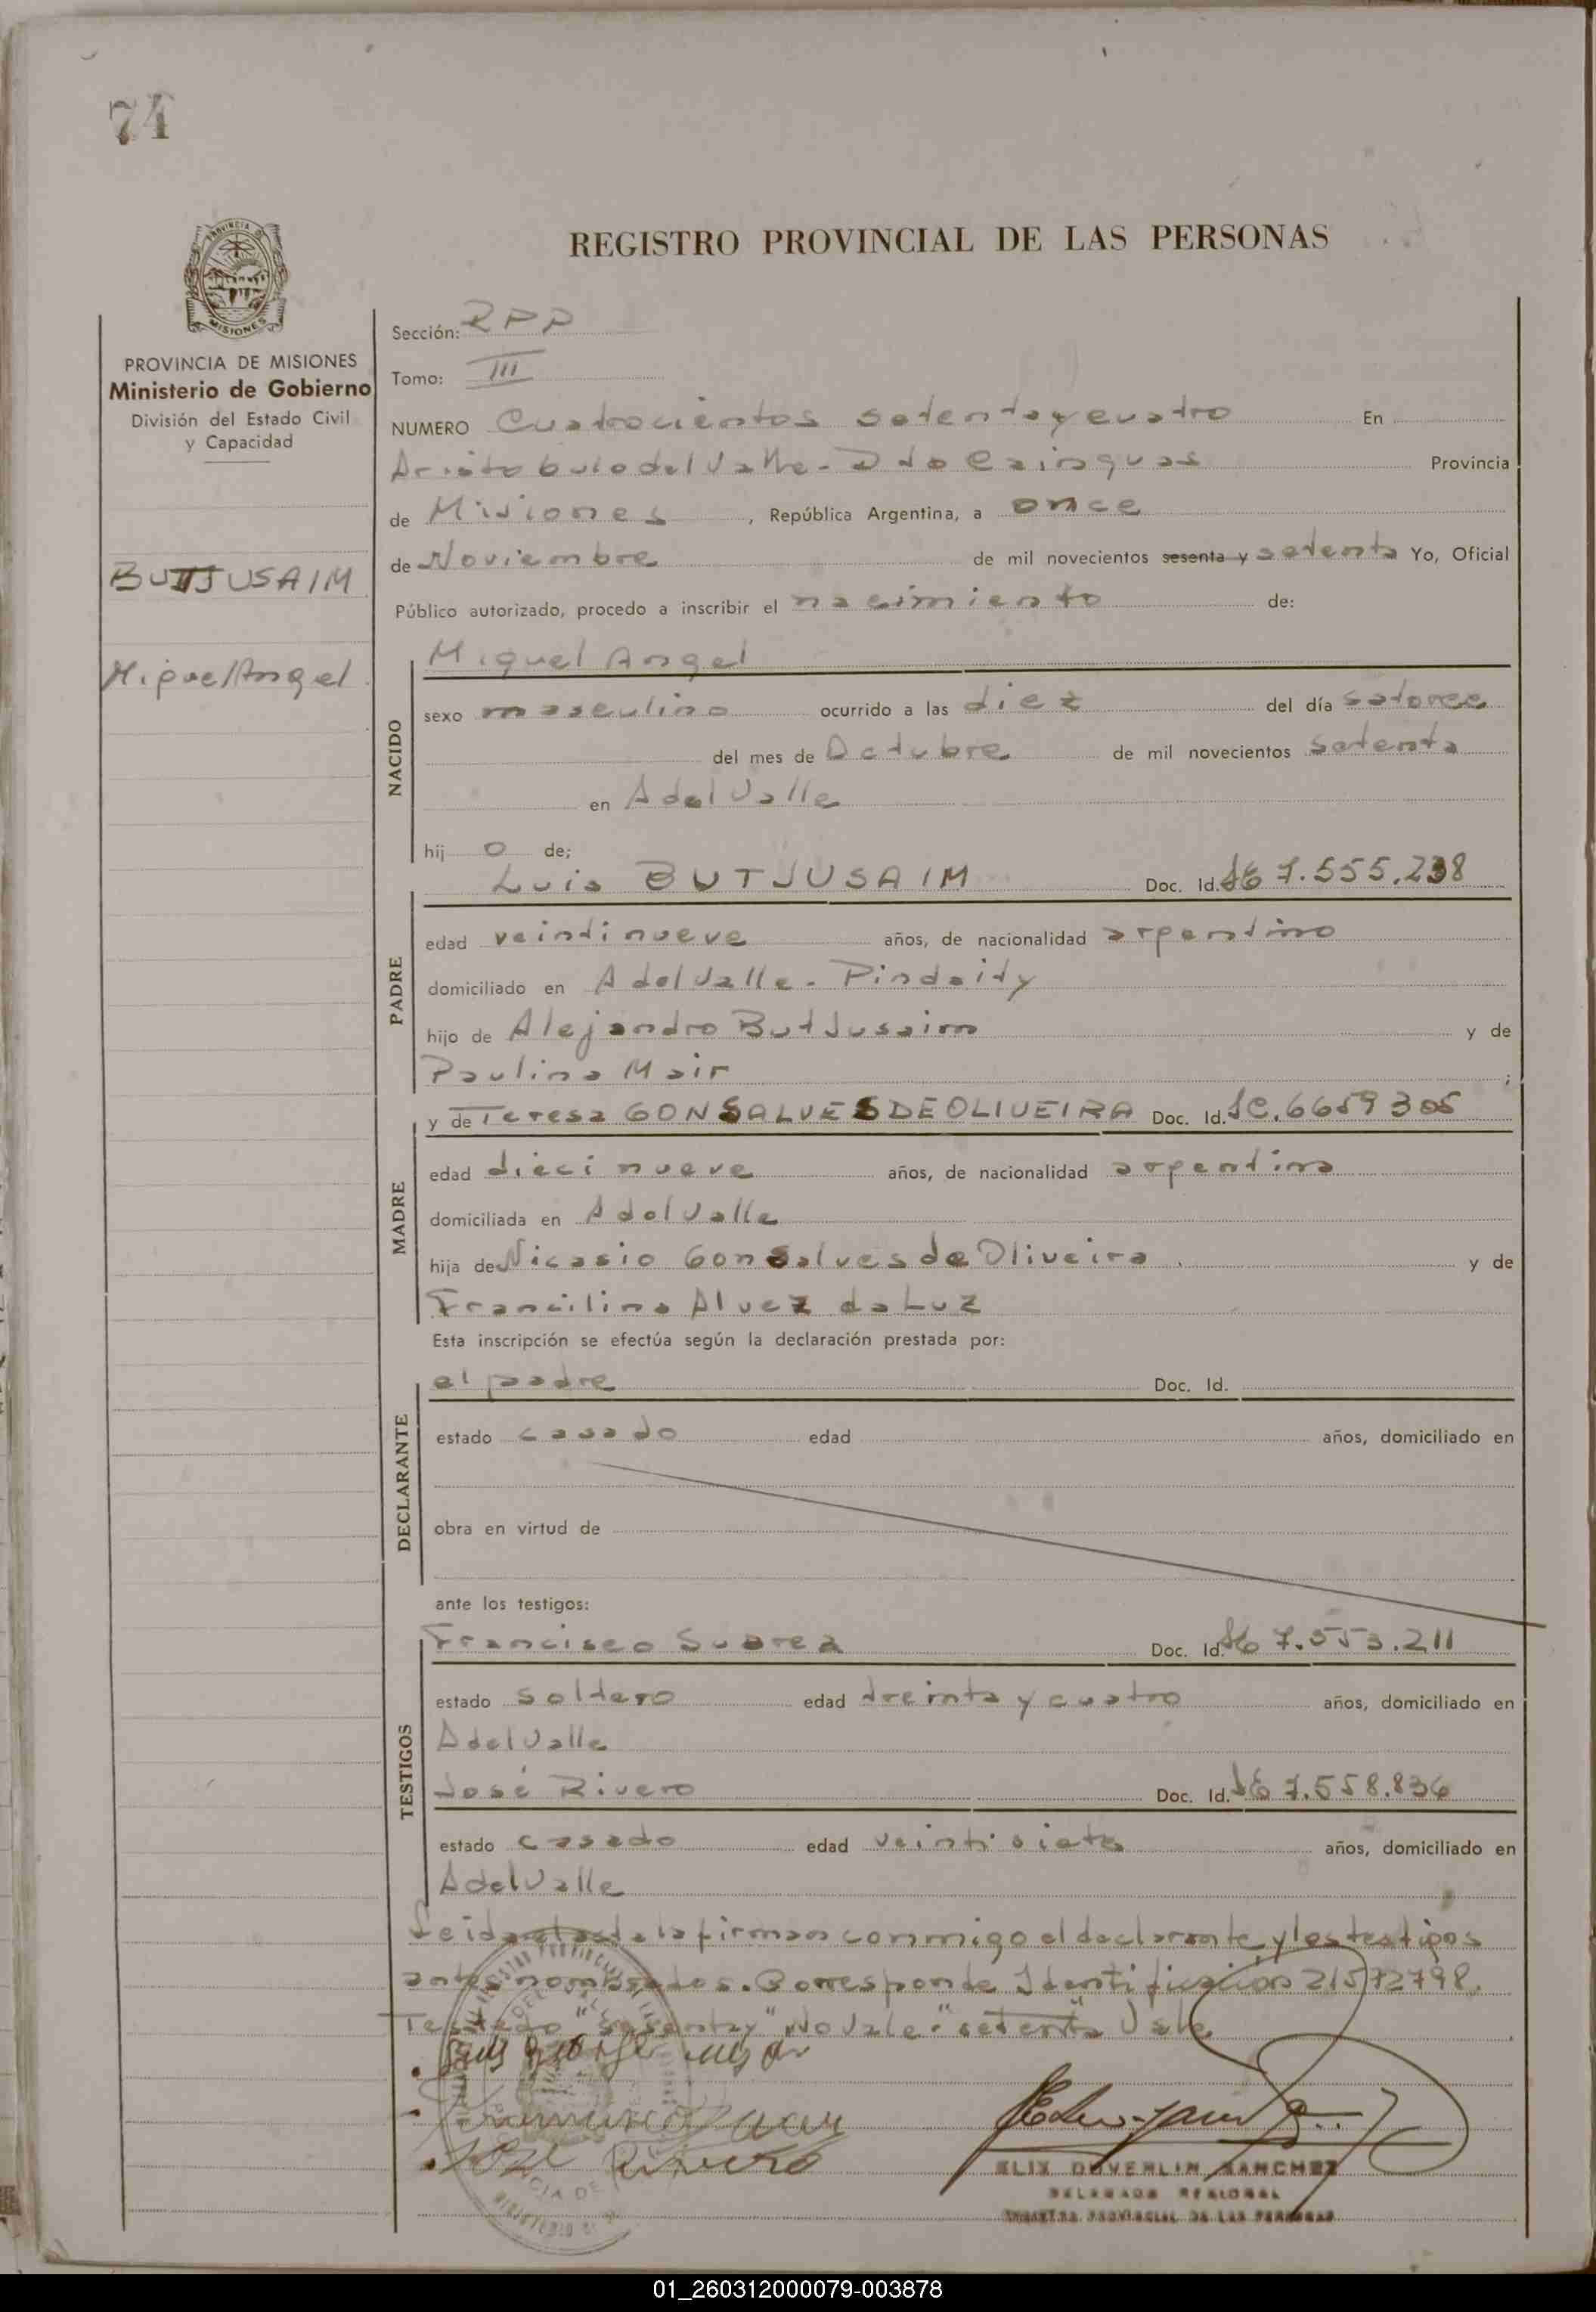 74
REGISTRO PROVINCIAL DE LAS PERSONAS
PROVINCIA DE MISIONES
MISIONES
PROVINCIA DE MISIONES
Ministerio de Gobierno
División del Estado Civil
y Capacidad
BUTJUSAIM
Miguel Angel
Sección: RPP
Tomo: III
NUMERO Cuatrocientos setenta y cuatro En
Aristobulo del Valle - Dto Cainguas Provincia
de Misiones, República Argentina, a once
de Noviembre de mil novecientos sesenta y setenta Yo, Oficial
Público autorizado, procedo a inscribir el nacimiento de:
NACIDO
Miguel Angel
sexo masculino ocurrido a las diez del día catorce
del mes de Octubre de mil novecientos setenta
en A del Valle
hij o de;
PADRE
Luis BUTJUSAIM Doc. Id. 7.555.238
edad veintinueve años, de nacionalidad argentino
domiciliado en A del Valle - Pindaity
hijo de Alejandro Butjusaim y de
Paulina Mair ;
MADRE
y de Teresa GONSALVES DE OLIVEIRA Doc. Id. 6659305
edad diecinueve años, de nacionalidad argentina
domiciliada en A del Valle
hija de Nicasio Gonsalves de Oliveira y de
Francilina Alvez da Luz
Esta inscripción se efectúa según la declaración prestada por:
DECLARANTE
el padre Doc. Id.
estado casado edad años, domiciliado en
obra en virtud de
ante los testigos:
TESTIGOS
Francisco Suarez Doc. Id. 7.553.211
estado soltero edad treinta y cuatro años, domiciliado en
A del Valle
José Rivero Doc. Id. 7.558.836
estado casado edad veintisiete años, domiciliado en
A del Valle
Leida el acta la firman conmigo el declarante y los testigos
antes nombrados. Corresponde Identificacion 21572798.
Testado "sesenta y" No Vale. "setenta" Vale
Jose Rivero
ELIX DUVERLIN SANCHEZ
DELEGADO REGIONAL
REGISTRO PROVINCIAL DE LAS PERSONAS
01_260312000079-003878